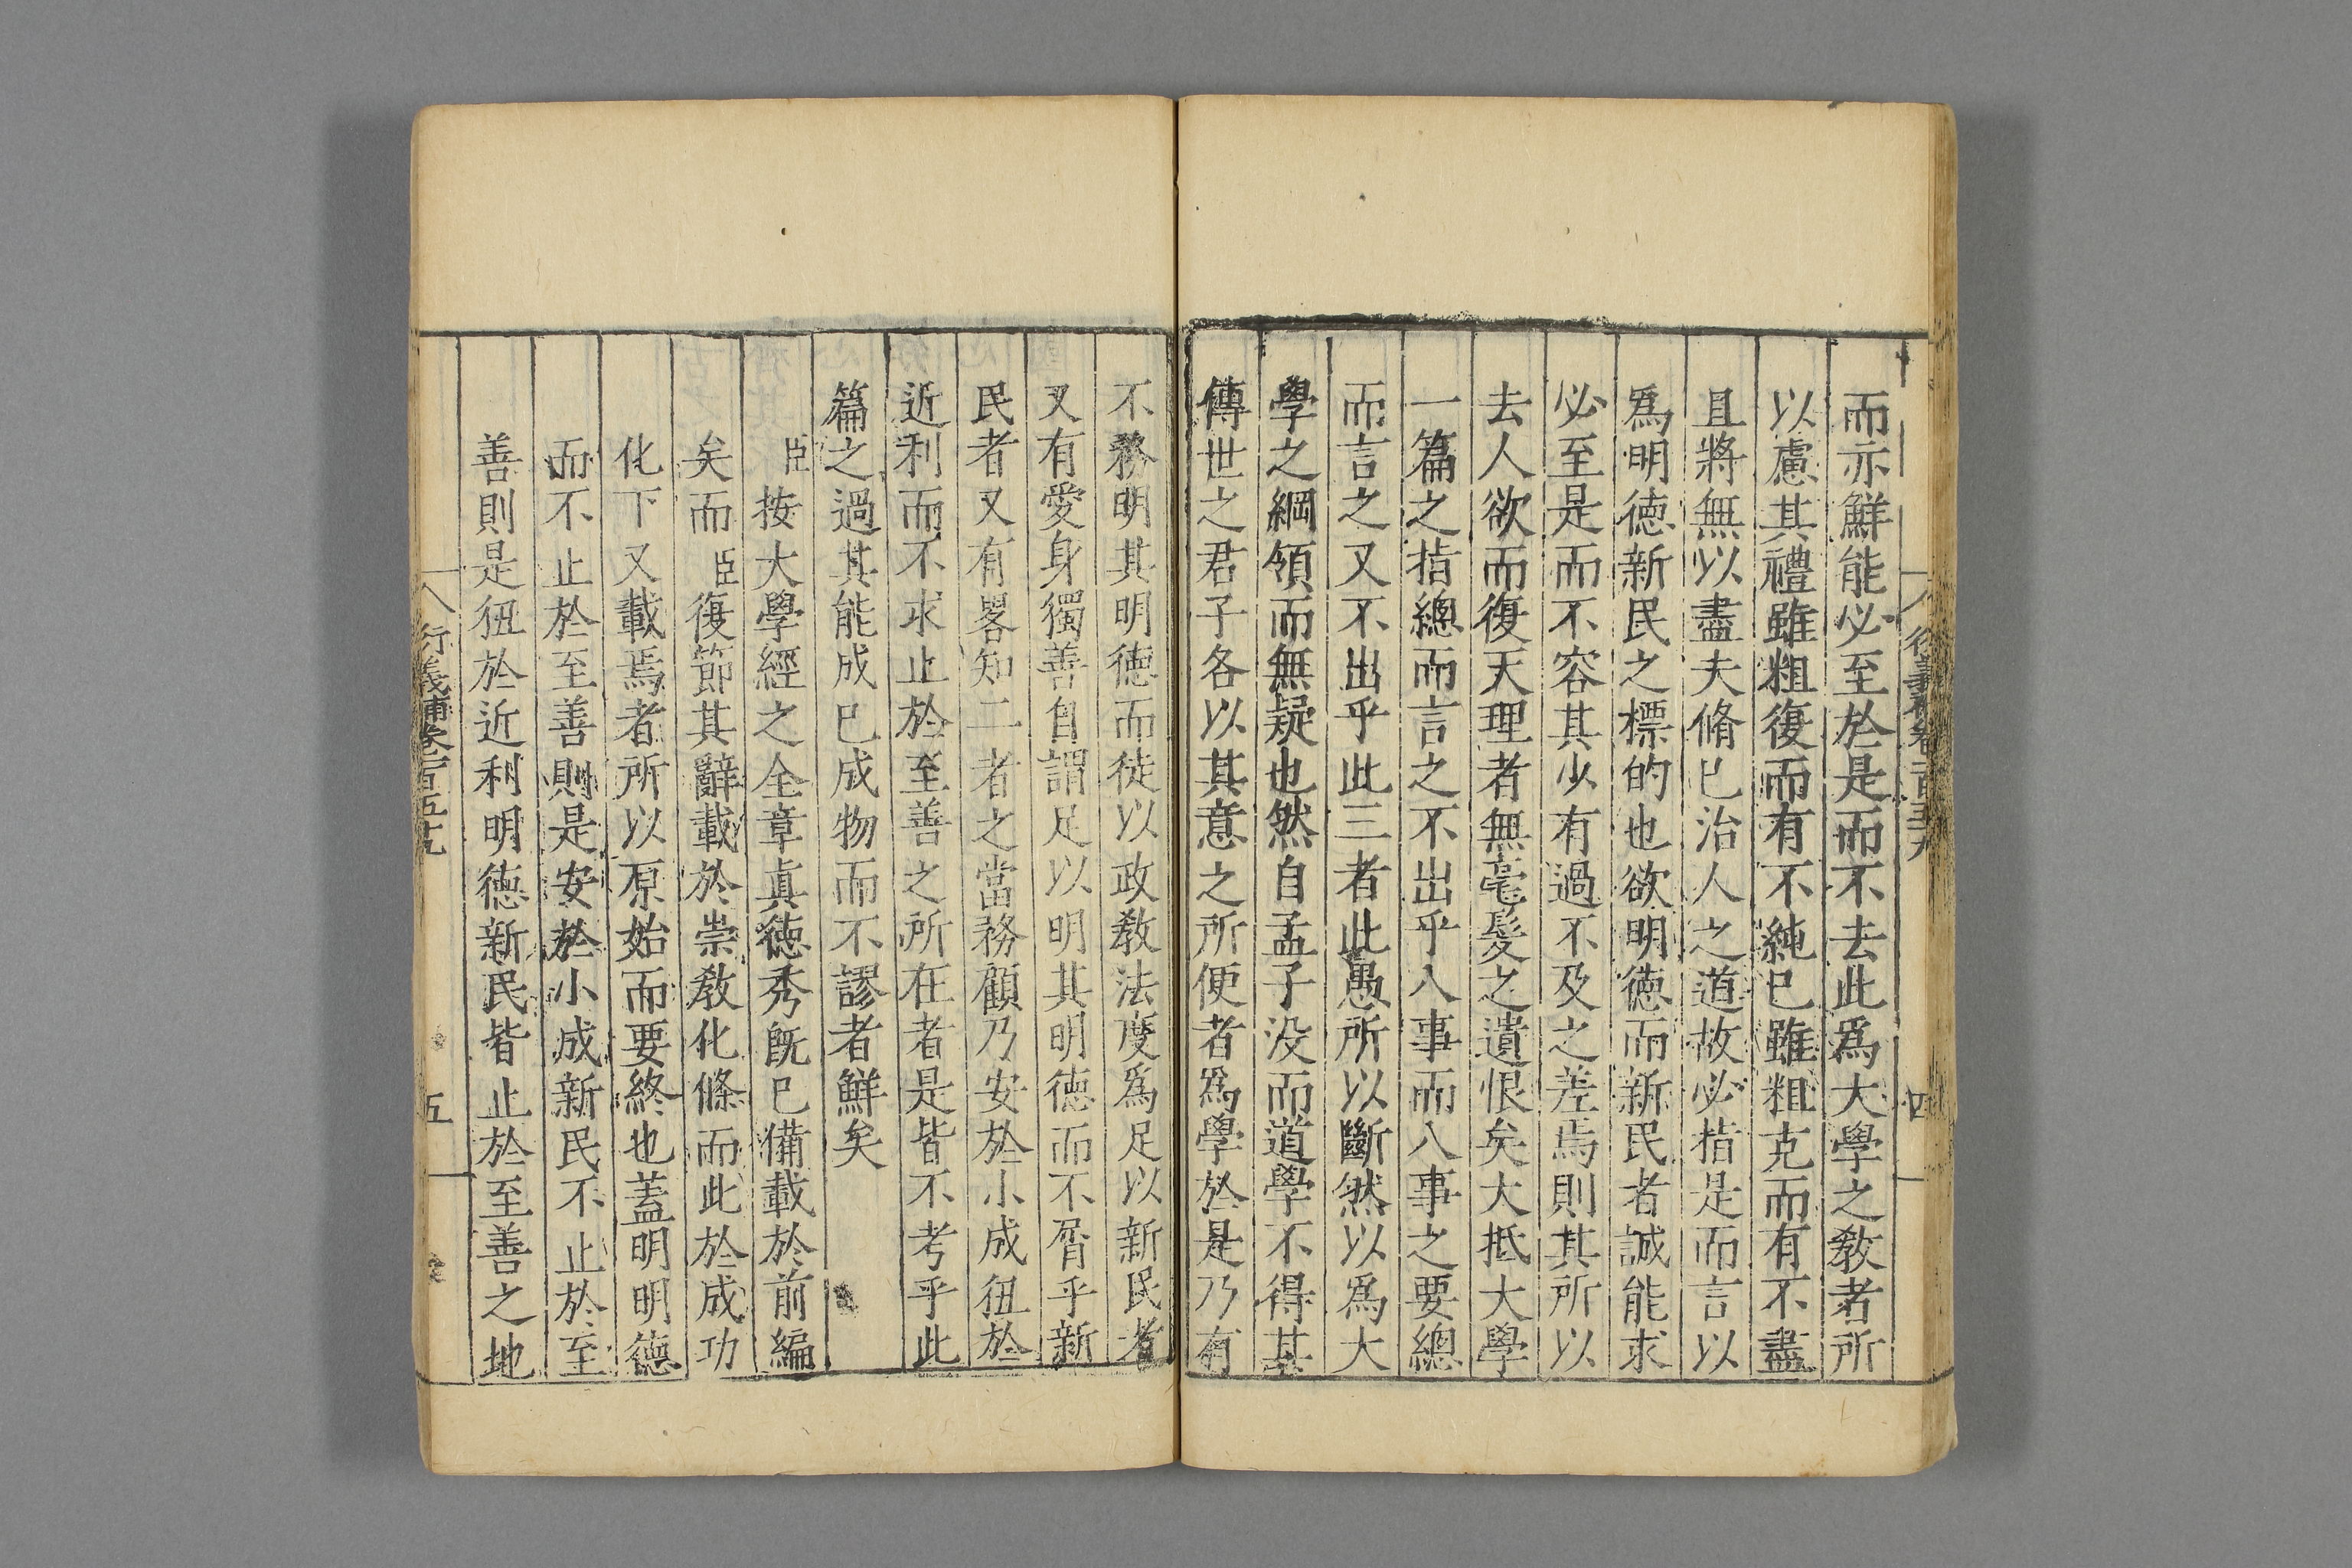 衍義補卷一百五十九
四
而亦鮮能必至於是而不去此爲大學之敎者所
以慮其禮雖粗復而有不純已雖粗克而有不盡
且將無以盡夫脩已治人之道故必指是而言以
爲明徳新民之標的也欲明徳而新民者誠能求
必至是而不容其少有過不及之差焉則其所以
去人欲而復天理者無毫髮之遺恨矣大抵大學
一篇之指總而言之不出乎八事而八事之要總
而言之又不出乎此三者此愚所以斷然以爲大
學之綱領而無疑也然自孟子没而道學不得其
傳世之君子各以其意之所便者爲學於是乃有
不務明其明徳而徒以政敎法度爲足以新民者
又有愛身獨善自謂足以明其明徳而不屑乎新
民者又有畧知二者之當務顧乃安於小成狃於
近利而不求止於至善之所在者是皆不考乎此
篇之過其能成已成物而不謬者鮮矣
臣按大學經之全章眞徳秀旣已備載於前編
矣而臣復節其辭載於崇敎化條而此於成功
化下又載焉者所以原始而要終也蓋明明德
而不止於至善則是安於小成新民不止於至
善則是狃於近利明徳新民皆止於至善之地
衍義補卷一百五十九
五